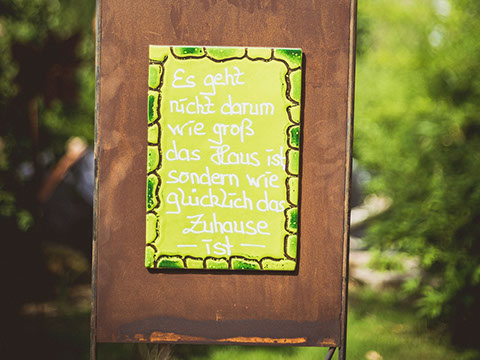 Es geht
nicht darum
wie groß
das Haus ist
sondern wie
glücklich das
Zuhause
— ist —